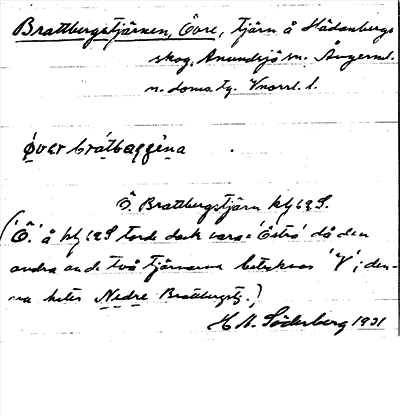 Brattbergstjärnen, Övre, tjärn å Hädanbergs
skog, Anundsjö sn. Ångerml.
n. doms. tg. Vnorrl. l.
øvər brátbæggɛ́na
Ö. Brattbergstjärn kbl 62 S.
('Ö.' å kbl 62 S torde dock vara 'Östra' då den
andra av de två tjärnarna betecknas 'V'; den-
na heter Nedre Brattbergstj.)
H. N. Söderberg 1931